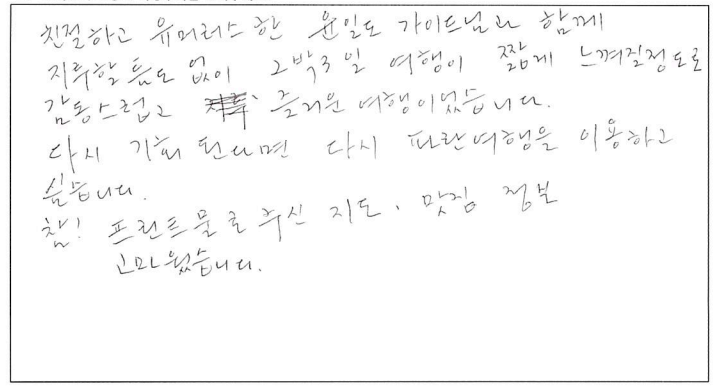 친절하고 유머러스한 윤일도 가이드님과 함께
지루할 틈도 없이 2박3일 여행이 짧게 느껴질정도로
감동스럽고 즐거운 여행이었습니다.
다시 기회 된다면 다시 파란여행을 이용하고
싶습니다.
참! 프린트물로 주신 지도, 맛집 정보
고마웠습니다.